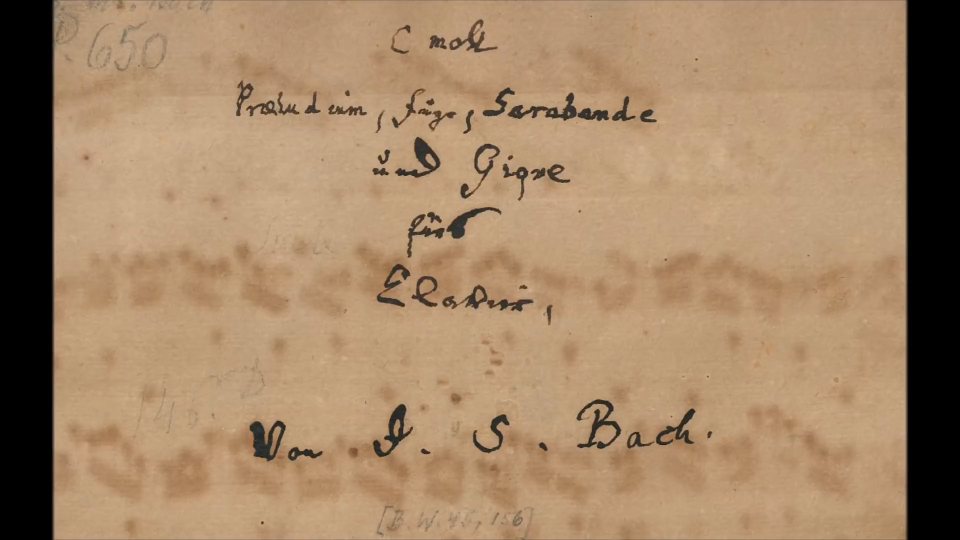 650
C moll
Præludium, Fuge, Sarabende
und Gique
fürs
Clavier,
146.
Von J. S. Bach.
[B.W. 45, 156]